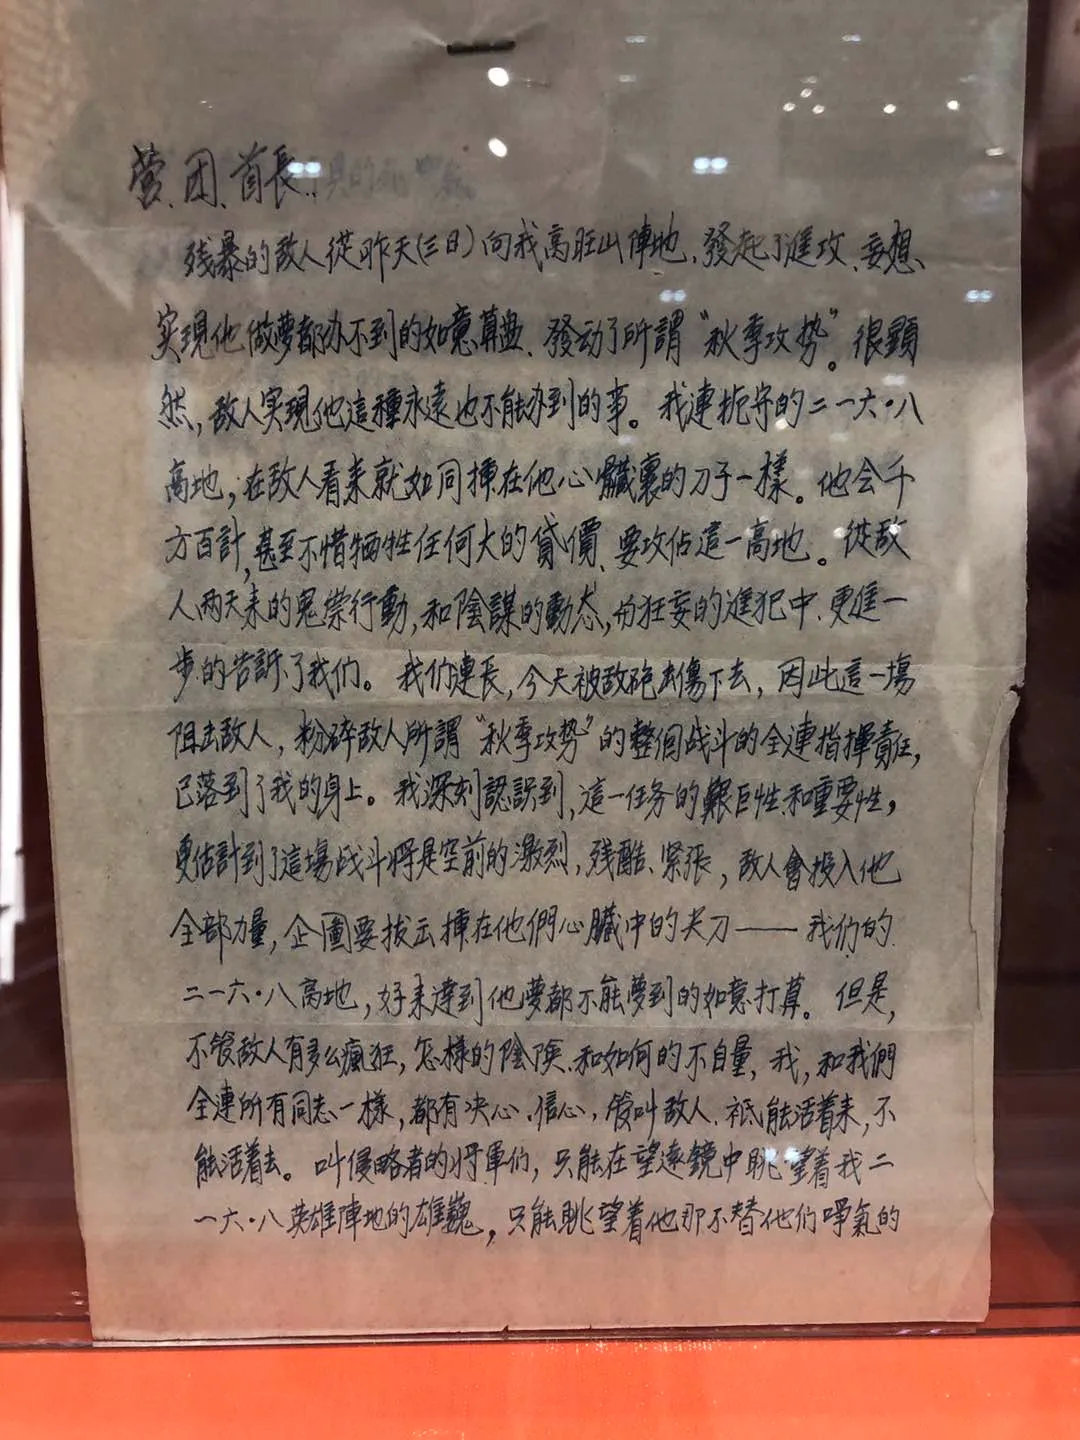 营、团、首長：
残暴的敌人從昨天(三日)向我高旺山陣地、發起了進攻、妄想、
实現他做夢都办不到的如意算盘、發动了所謂“秋季攻势”。很顯
然，敌人实現他這種永遠也不能办到的事。我連扼守的二一六·八
高地，在敌人看来就如同揷在他心臟裏的刀子一樣。他会千
方百計，甚至不惜牺牲任何大的貸價、要攻佔這一高地。從敌
人两天来的鬼祟行動，和陰謀的動态，的狂妄的進犯中、更進一
步的告訴了我们。我们連長，今天被敌砲击傷下去，因此這一場
阻击敌人，粉碎敌人所謂“秋季攻势”的整個战斗的全連指揮責任，
已落到了我的身上。我深刻認識到，這一任务的艱巨性和重要性，
更估計到了這場战斗将是空前的激烈，残酷、紧张，敌人會投入他
全部力量，企圖要拔去揷在他們心臟中的尖刀——我们的
二一六·八高地，好来達到他夢都不能夢到的如意打算。但是，
不管敌人有多么瘋狂，怎樣的陰險、和如何的不自量，我，和我們
全連所有同志一樣，都有决心、信心，管叫敌人、祗能活着来，不
能活着去。叫侵略者的将軍们，只能在望遠鏡中眺望着我二
一六·八英雄陣地的雄巍，只能眺望着他那不替他们啍氣的